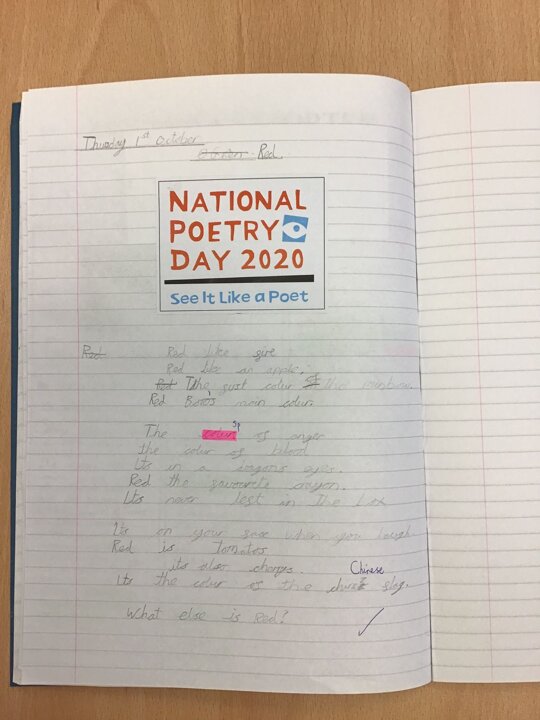 Thursday 1st October
Red.
NATIONAL
POETRY
DAY 2020
See It Like a Poet
Red Red like gire
Red like an apple.
Red The gist colur of the rainbow.
Red Bro's main colur.
sp
The colur of anger
the colur of blood
Its in a dragons eyes.
Red the gavourite crayon.
Its never lest in the box
Its on your gace when you laugh
Red is Tomatos
its also cherrys. Chinese
Its the colur of the glag.
What else is Red?